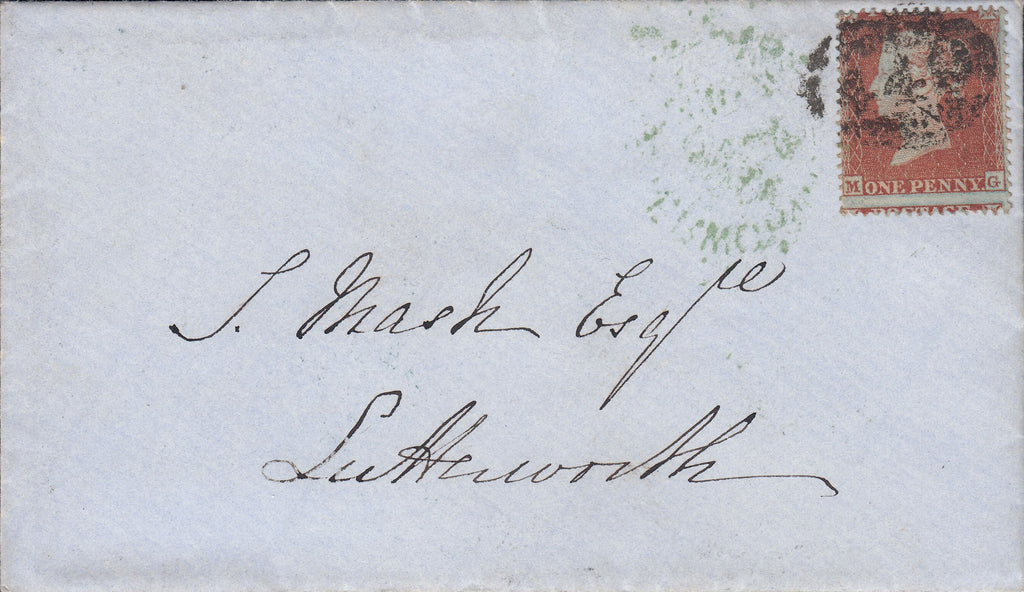 M ONE PENNY G
POSTAGE
S. Mash Esqre
Lutterworth